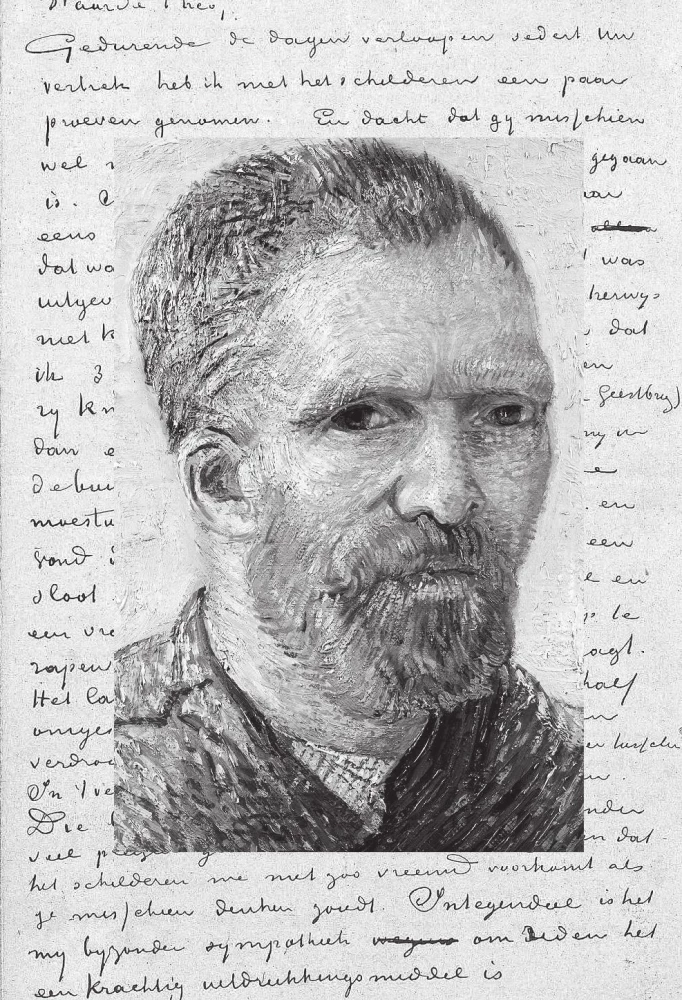 Waarde Theo,
Gedurende de dagen verloopen sedert uw
vertrek heb ik met het schilderen een paar
proeven genomen. En dacht dat gy misschien
wel gegaan
is.
eens
dat was
uitgev
met k dat
ik 3 en
zy kn -Geestbrug)
dan e
debui
moest en
vond i een
sloot e en
een vre te
rapen aagt.
Het la half
omge
verdro
In 't ve
Die nder
veel en dat
het schilderen me niet zoo vreemd voorkomt als
ge misschien denken zoudt. Integendeel is het
my byzonder sympathiek om reden het
een krachtig uitdrukkingsmiddel is